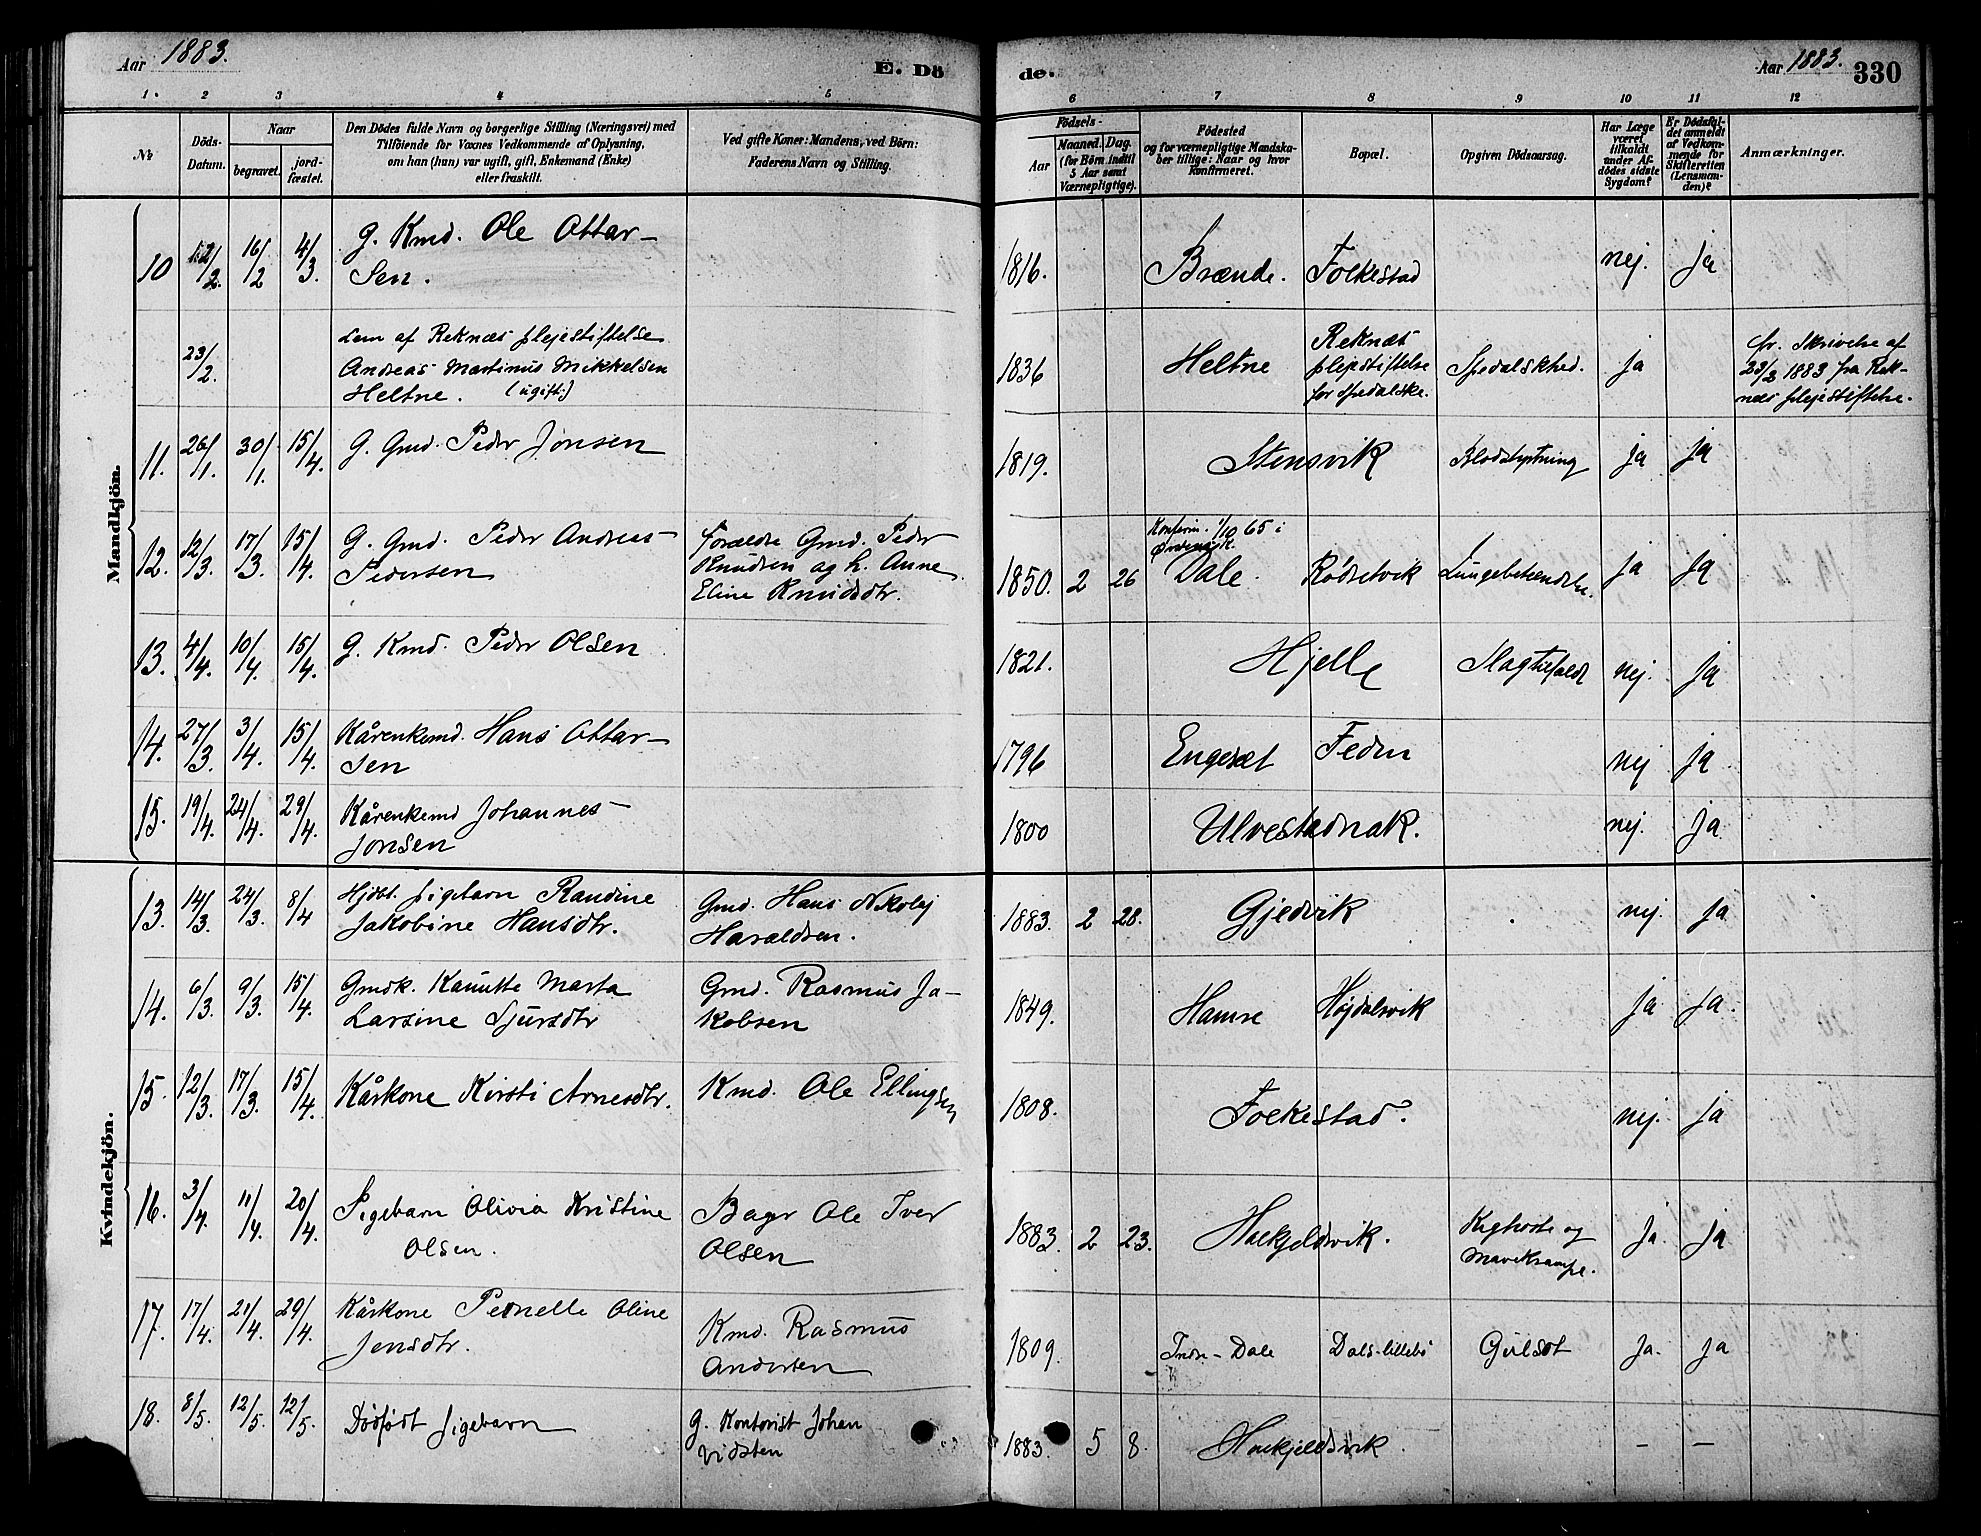 Aar 1883.
E. Dö
de.
Aar 1883.
330
1. 2 3 4 5 6 7 8 9 10 11 12
No
Döds-
Datum.
Naar
begravet.
jord-
fæstet.
Den Dödes fulde Navn og borgerlige Stilling (Næringsvei) med
Tilföiende for Voxnes Vedkommende af Oplysning,
om han (hun) var ugift, gift, Enkemand (Enke)
eller fraskilt.
Ved gifte Koner: Mandens, ved Börn:
Faderens Navn og Stilling.
Födsels-
Aar
Maaned. Dag.
(for Börn indtil
5 Aar samt
Værnepligtige).
Födested
og for værnepligtige Mandska-
ber tillige: Naar og hvor
konfirmeret.
Bopæl.
Opgiven Dödsaarsag.
Har Læge
været
tilkaldt
under Af-
dödes sidste
Sygdom?
Er Dödsfal-
det anmeldt
af Vedkom-
mende for
Skifteretten
(Lensman-
den)?
Anmærkninger.
Mandkjön.
10 12/2. 16/2 4/3. G. Kmd. Ole Ottar-
Sen. 1816. Brænde. Folkestad nej. ja
23/2. Lem af Reknæs plejestiftelse
Andreas Martinus Mikkelsen
Heltne. (ugift.) 1836 Heltne Reknæs
plejestiftelse
for spedalske. Spedalskhed. ja cfr. Skrivelse af
23/2 1883 fra Rek-
næs plejestiftelse.
11. 26/1. 30/1. 15/4. G. Gmd. Peder Jonsen 1819. Stensvik Blodstyrtning ja ja
12. 12/3. 17/3. 15/4. G. Gmd. Peder Andreas
Pedersen forældre Gmd. Peder
Knudsen og h. Anne
Eline Knudsdtr. 1850. 2 26 Konfirm. 1/10 65 i
Dale. Rödsetvik Lungebetændelse. ja ja
13. 4/4. 10/4. 15/4. G. Kmd. Peder Olsen 1821. Hjelle Slagtilfælde nej. ja
14. 27/3. 3/4. 15/4. Kårenkemd. Hans Ottar-
sen 1796 Engeset nej ja
15. 19/4. 24/4. 29/4. Kårenkemd Johannes
Jonsen 1800 Ulvestadnak. nej. ja
Kvindekjön.
13. 14/3. 24/3. 8/4 Hjdbt. pigebarn Randine
Jakobine Hansdtr. Gmd. Hans Nikolaj
Haraldsen. 1883. 2 28. Gjedvik nej. ja
14. 6/3. 9/3. 15/4. Gmdk. Kanutte Marta
Larsine Sjursdtr Gmd. Rasmus Ja-
kobsen 1849. Hamre Højdalsvik ja ja.
15. 12/3. 17/3. 15/4. Kårkone Kirsti Arnesdtr. Kmd. Ole Ellingsen 1808. Folkestad. nej. ja
16. 3/4. 11/4. 20/4. Pigebarn Olivia Kristine
Olsen. Bager Ole Iver
Olsen 1883. 2 23. Hækjeldsvik. Kighoste og
Mavekrampe. ja. ja
17. 17/4. 21/4. 29/4. Kårkone Pernelle Oline
Jensdtr. Kmd. Rasmus
Andersen 1809. Indre-Dale Dals-lillebö Gulsot ja. ja
18. 8/5. 12/5. 12/5. Dödfödt pigebarn G. Kontorist Johan
Vidsten 1883. 5 8. Hækjeldsvik. - -